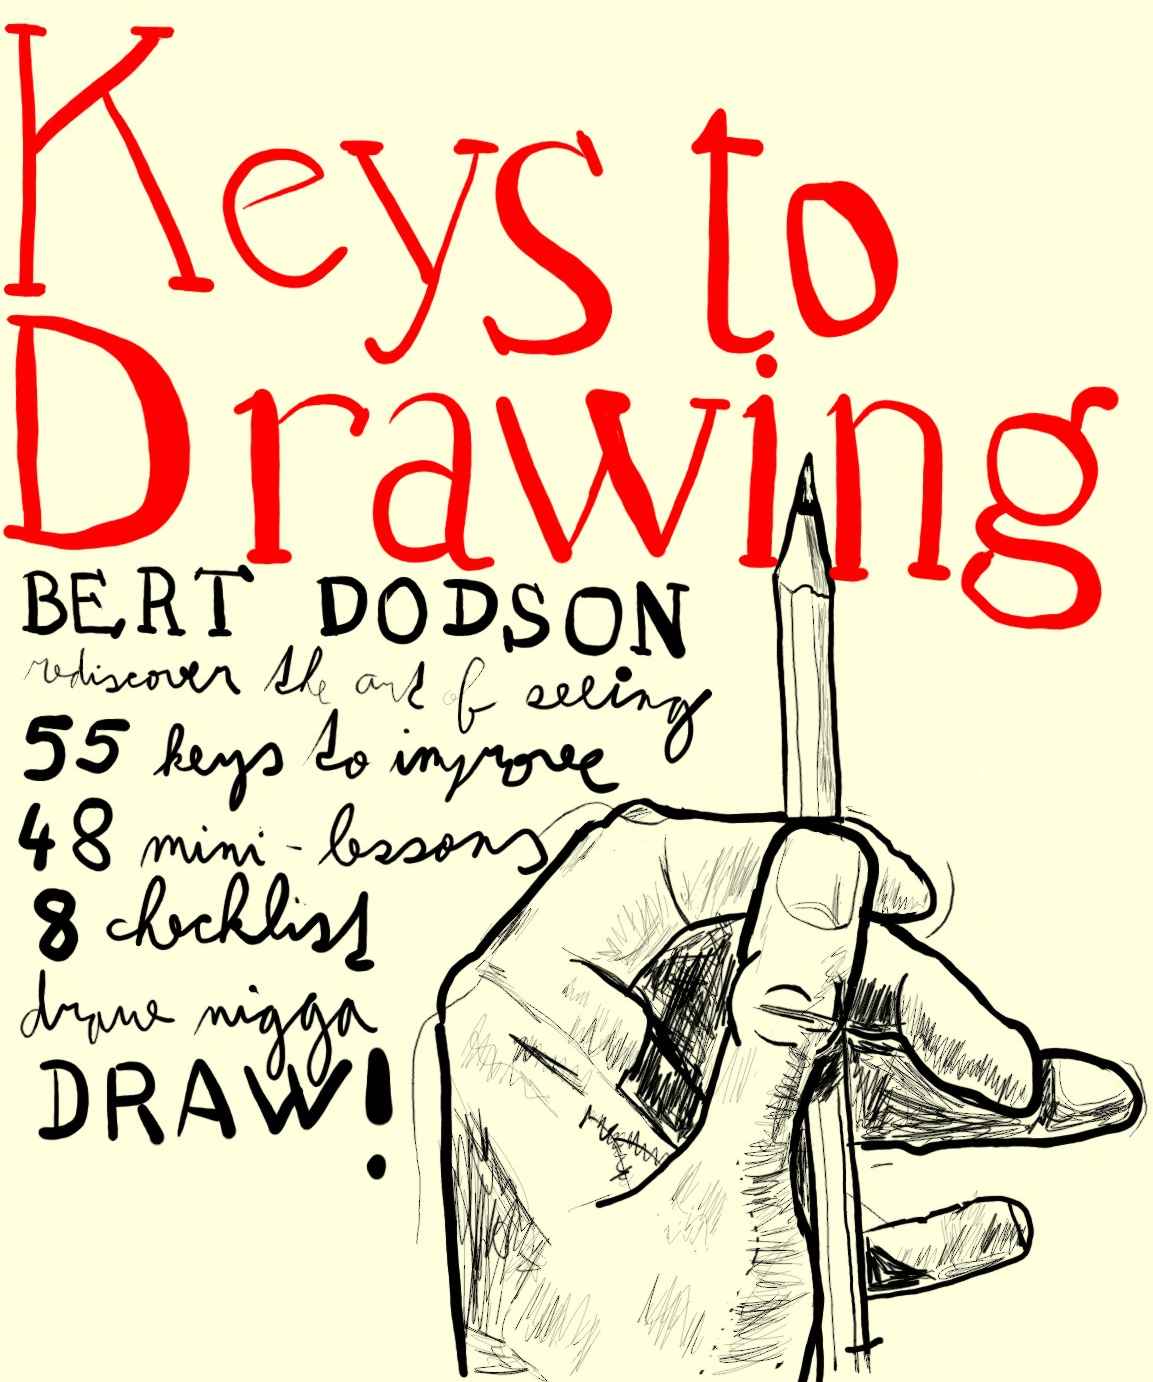 Keys to
Drawing
BERT DODSON
rediscover the art of seeing
55 keys to improve
48 mini-lessons
8 checklist
draw nigga
DRAW!